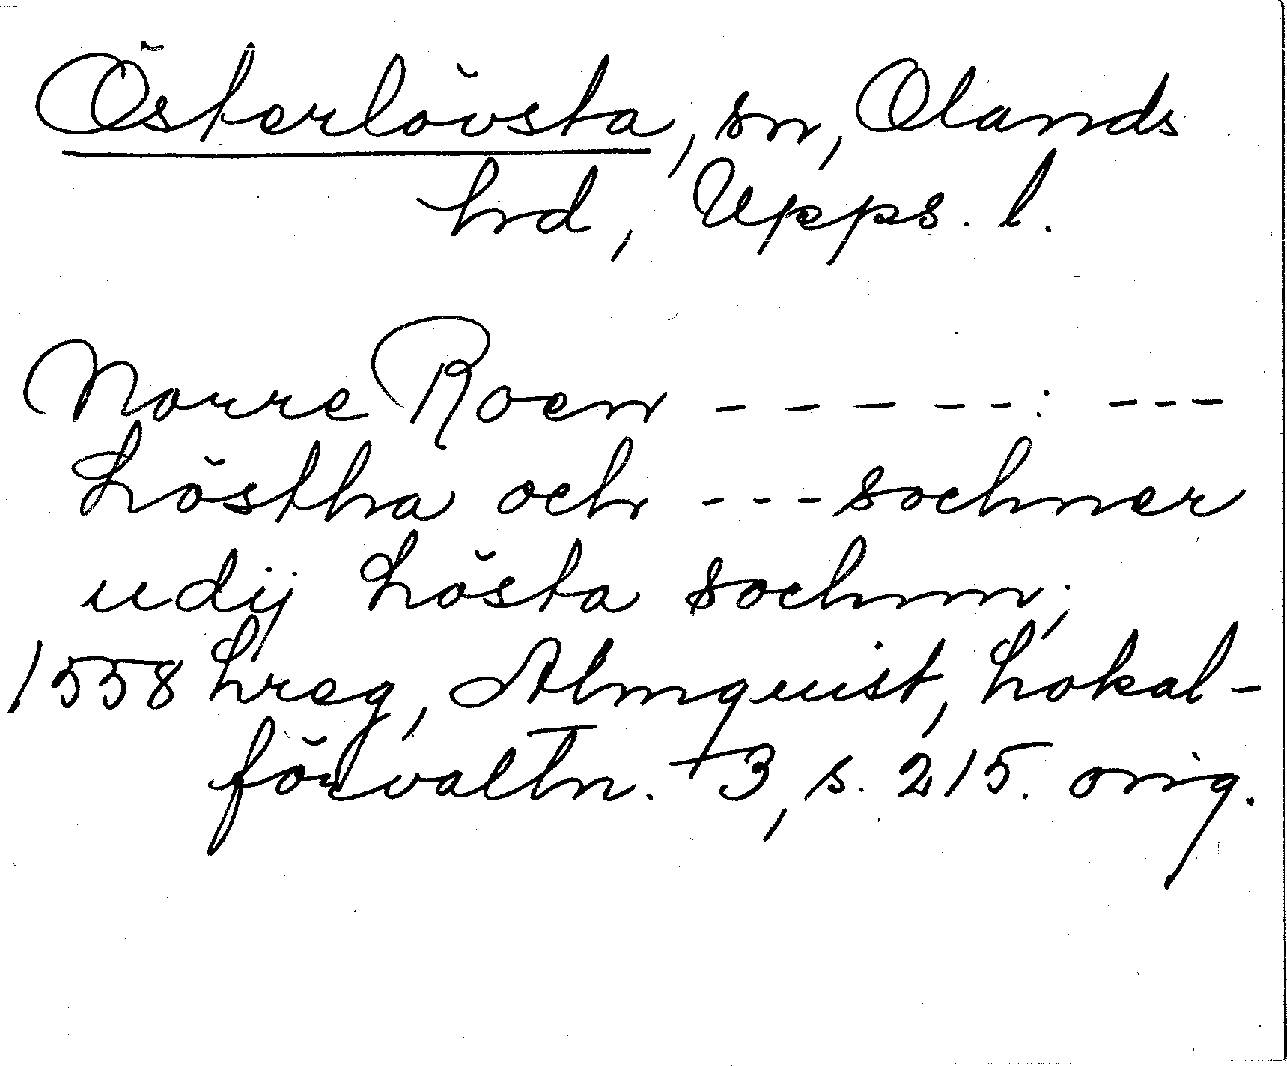 Österlövsta, sn, Olands
hrd, Upps. l.
Norre Roen - - - - - : - - -
Löstha och - - - sochner
udij Lösta sochnn;
1558 Lreg, Almquist, Lokal-
förvaltn. 3, s. 215. orig.